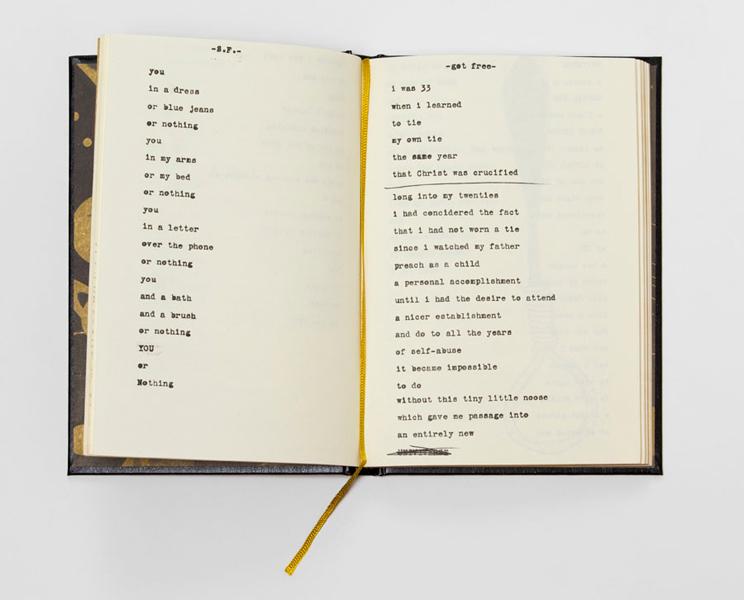 -S.F.-
you
in a dress
or blue jeans
or nothing
you
in my arms
or my bed
or nothing
you
in a letter
over the phone
or nothing
you
and a bath
and a brush
or nothing
YOU
or
Nothing
-got free-
i was 33
when i learned
to tie
my own tie
the same year
that Christ was crucified
long into my twenties
i had concidered the fact
that i had not worn a tie
since i watched my father
preach as a child
a personal accomplishment
until i had the desire to attend
a nicer establishment
and do to all the years
of self-abuse
it became impossible
to do
without this tiny little noose
which gave me passage into
an entirely new